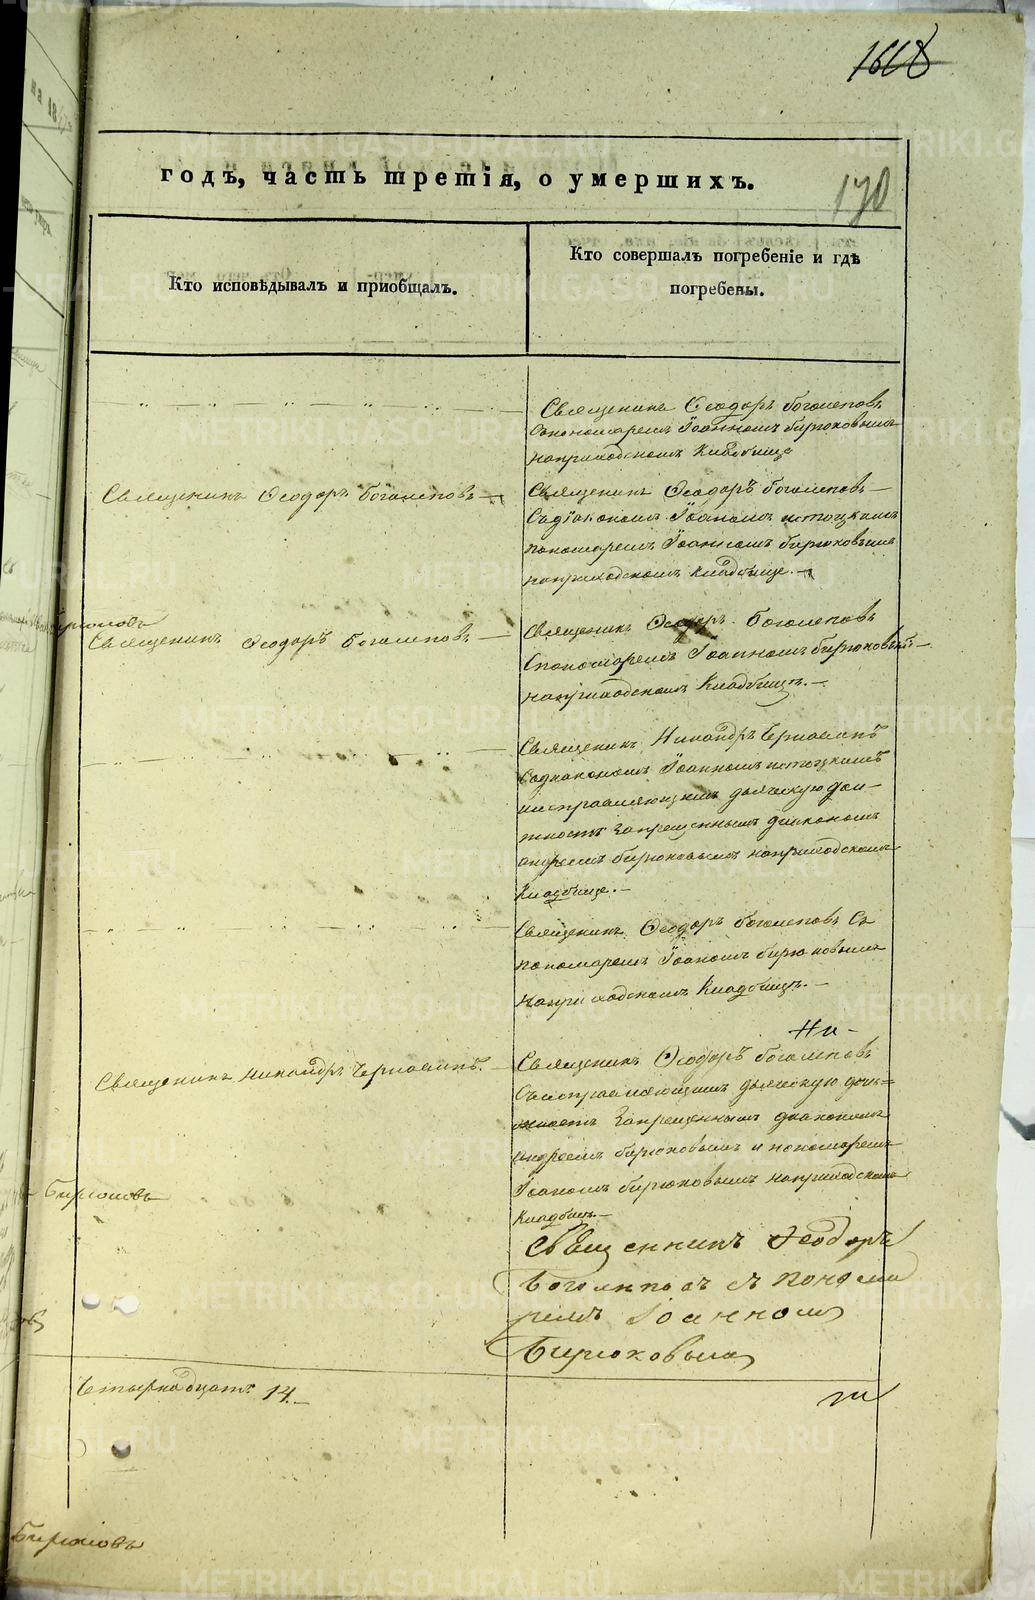 1668
годъ, часть третія, о умершихъ.
170
Кто исповѣдывалъ и приобщалъ.
Кто совершалъ погребеніе и гдѣ
погребены.
Священникъ Ѳеодоръ Боголеповъ
Спономаремъ Іоанномъ Бирюковымъ
наприходскомъ Кладбище
Священникъ Ѳеодоръ Боголеповъ
Священникъ Ѳеодоръ Боголеповъ
Содіакономъ Іоаномъ
пономаремъ Іоанномъ Бирюковымъ
наприходскомъ Кладбище.
Бирюковъ
Священникъ Ѳеодоръ Боголеповъ
Священникъ Ѳеодоръ Боголеповъ
Спономаремъ Іоанномъ Бирюковымъ
наприходскомъ Кладбищъ.
Священникъ Никандръ
Содиакономъ Іоанномъ
исправляющимъ дьяческую дол-
жность Запрещеннымъ диакономъ
андреемъ бирюковымъ наприходскомъ
Кладбище.
Священникъ Ѳеодоръ Боголеповъ Съ
пономаремъ Іоаномъ бирюковымъ
наприходскомъ Кладбищъ.
Священникъ Никандръ
Священникъ Ѳеодоръ Боголеповъ
Съисправляющимъ дьяческую дол=
жность Запрещеннымъ диакономъ
андреемъ бирюковымъ и пономаремъ
Іоаномъ бирюковымъ наприходскомъ
Кладбищъ.
Бирюковъ
Священникъ Ѳеодоръ
Боголеповъ съ понома
ремъ Іоанномъ
Бирюковымъ
Четырнадцать 14.
Бирюковъ
METRIKI.GASO-URAL.RU